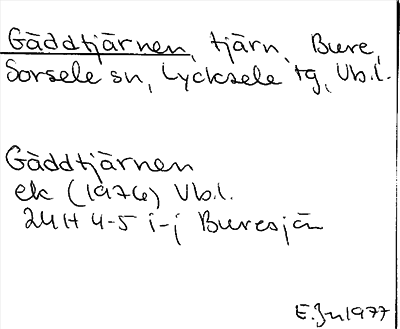 Gäddtjärnen, tjärn, Bure,
Sorsele sn, Lycksele tg, Vb.l.
Gäddtjärnen
ek (1976) Vb.l.
24H 4-5 i-j Buresjön
E. Jn 1977